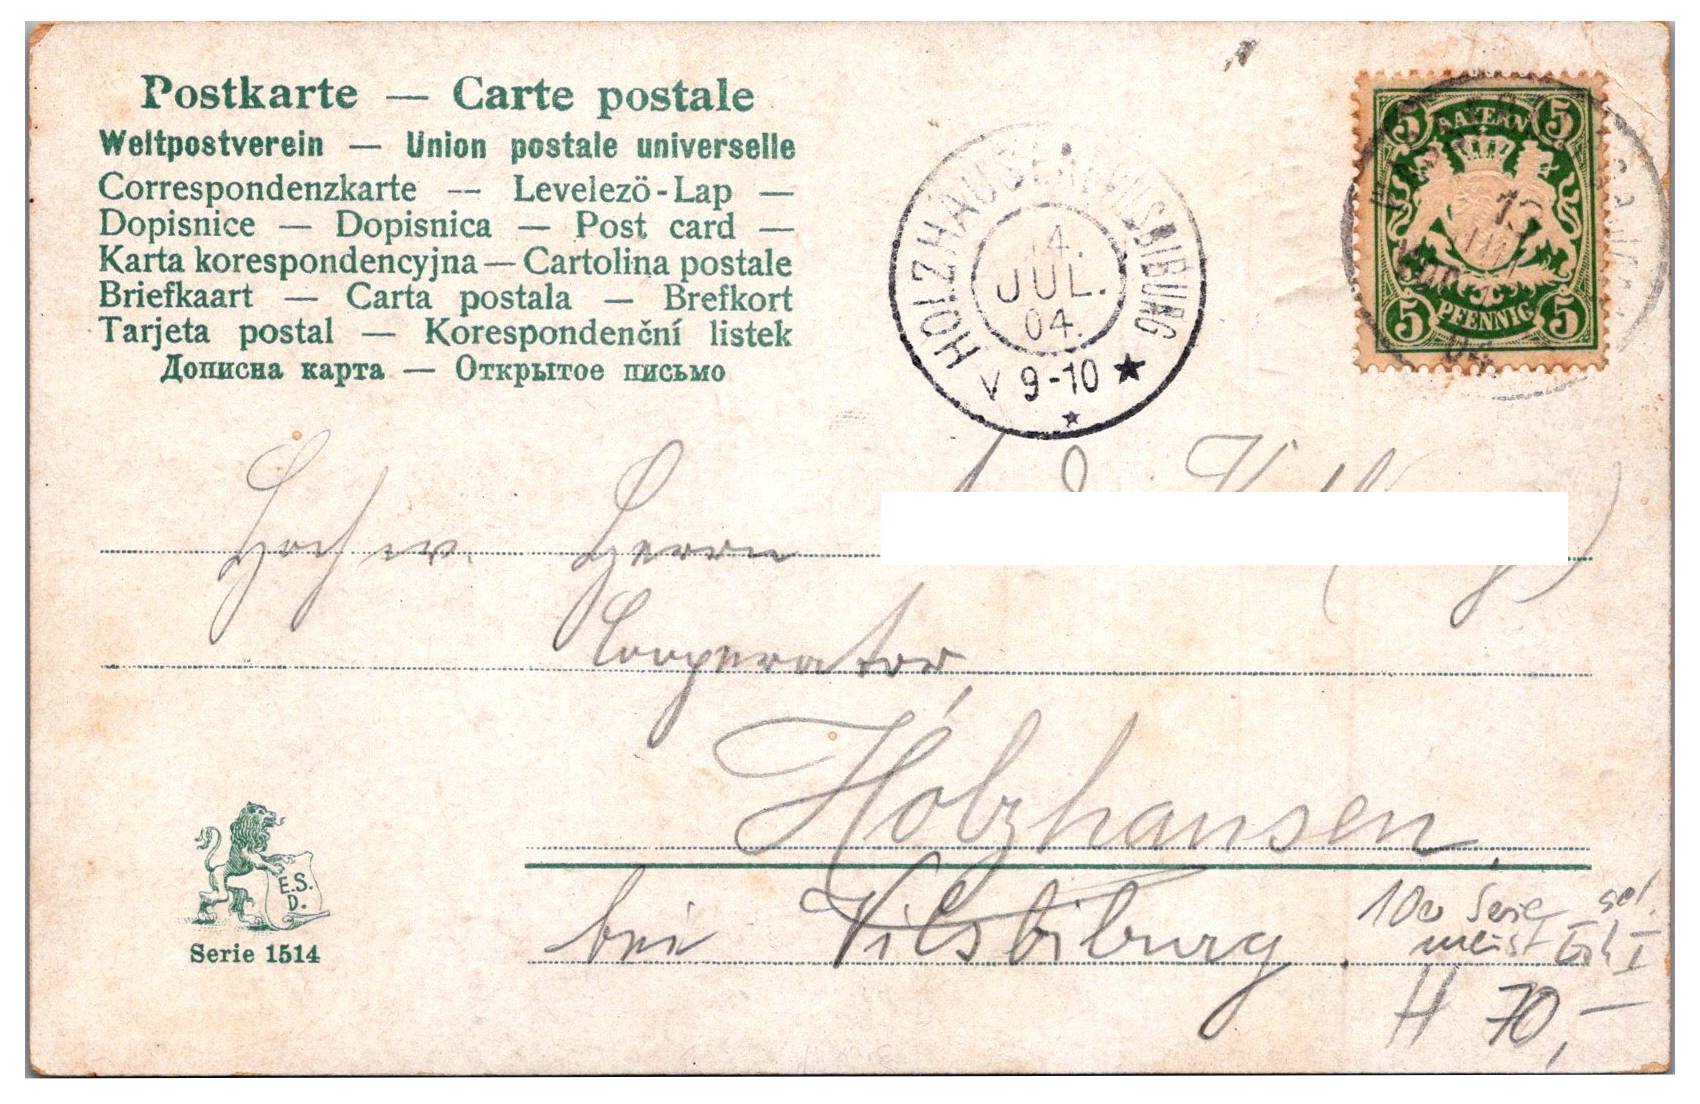 Postkarte — Carte postale
Weltpostverein — Union postale universelle
Correspondenzkarte — Levelező-Lap —
Dopisnice — Dopisnica — Post card —
Karta korespondencyjna — Cartolina postale
Briefkaart — Carta postala — Brefkort
Tarjeta postal — Korespondenční listek
Дописна карта — Открытое письмо
HOLZHAUSEN VILSBIBURG
14.
JUL.
04.
V 9-10
5 BAYERN 5
13
JUL
5 PFENNIG 5
04
Hochw. Herrn
Cooperator,
Holzhausen,
bei Vilsbiburg.
E.S.
D.
Serie 1514
10er Serie gel.
meist I
H 70,—